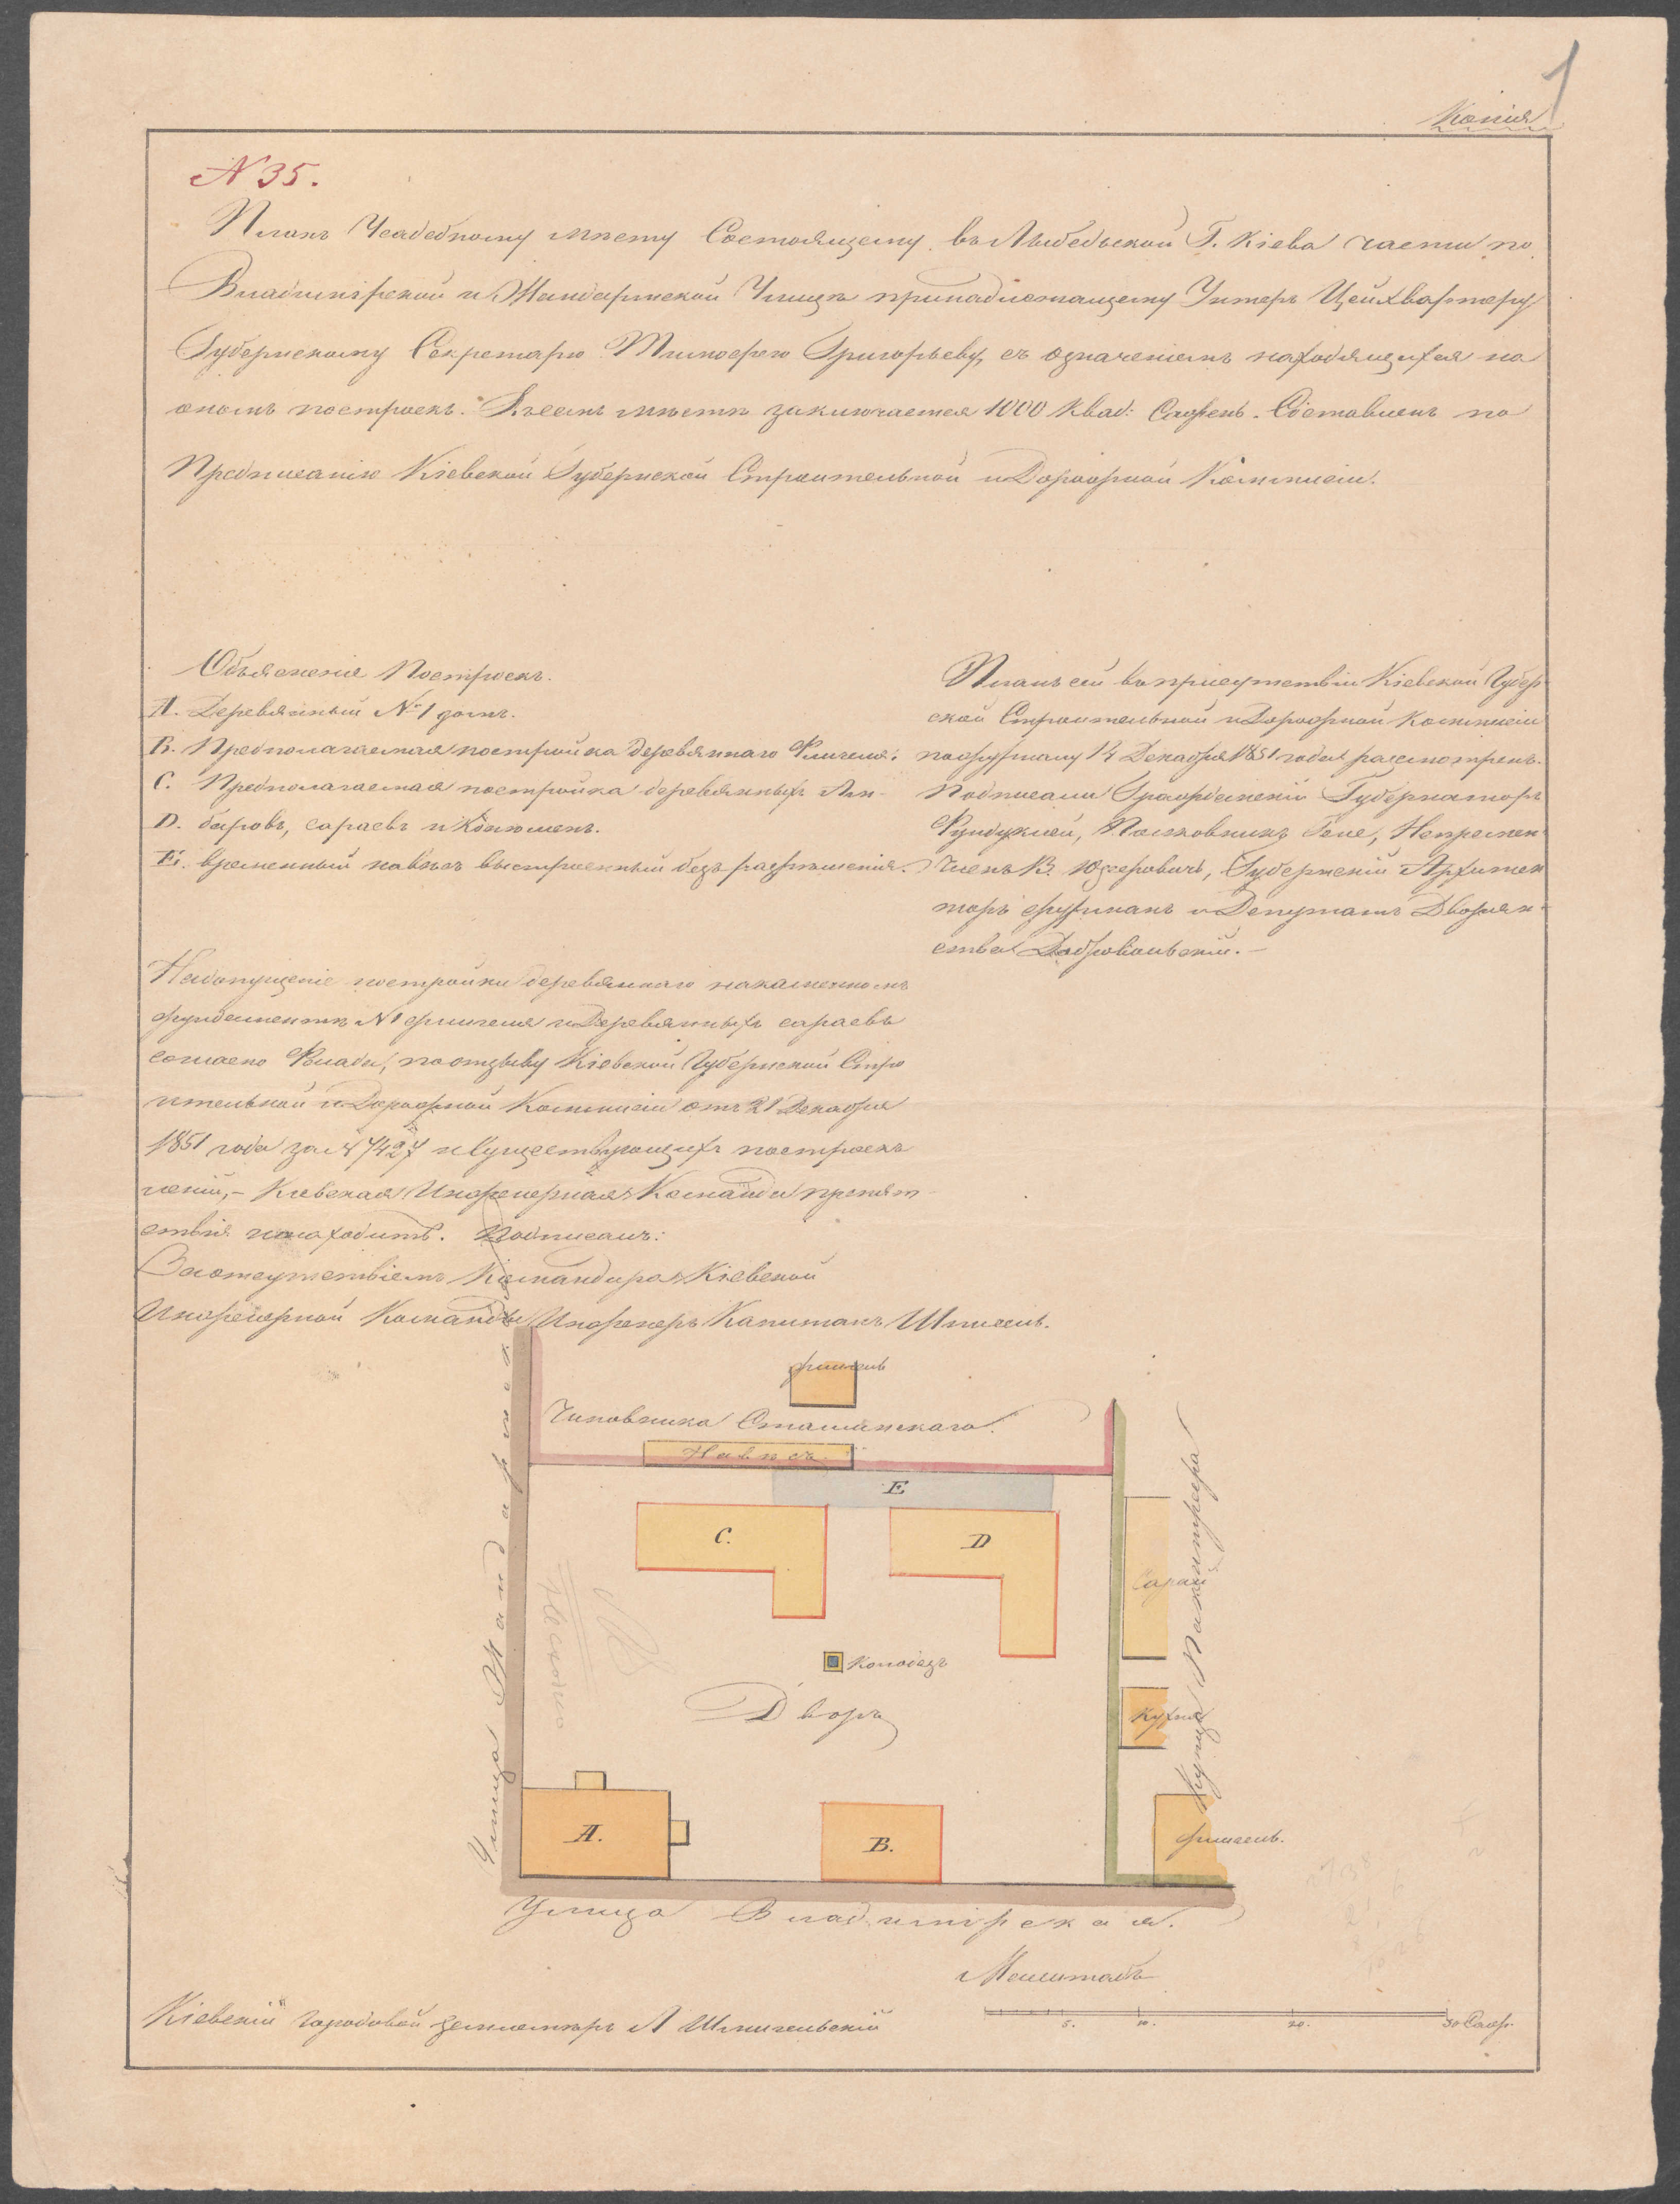 1
Копія
N 35.
Планъ Усадебному мѣсту Состоящему въ Лыбедьской Г. Кіева части по
Владимірской и Жандармской Улицѣ принадлежащему Унтеръ Цейхвартеру
Губернскому Секретарю Тимофею Григорьеву, съ означеніемъ находящихся на
ономъ построекъ. Въ семъ мѣстѣ заключается 1000 Квад: Сажень. Составленъ по
Предписанію Кіевской Губернской Строительной и Дорожной Коммисіи.
Объясненіе Построекъ.
А. Деревянный № 1 домъ.
В. Предполагаемая постройка деревяннаго Флигеля.
С. Предполагаемая постройка деревянныхъ Ам-
D. баровъ, сараевъ и Конюшенъ.
Е. временный навѣсъ выстроенный безъ разрѣшенія.
Планъ сей въ присутствіи Кіевской Губерн-
ской Строительной и Дорожной Коммисіи
по журналу 14 Декабря 1851 года разсмотренъ.
Подписали Гражданскій Губернаторъ
Фундуклей, Полковникъ Гопе, Непремен:
Членъ В. Юзефовичъ, Губернскій Архитек
торъ и Депутатъ Дворян-
ства Добровольскій.
На допущеніе постройки деревяннаго на каменномъ
фундаментѣ N 1 флигеля и Деревянныхъ сараевъ
согласно по отзыву Кіевской Губернской Стро
ительной и Дорожной Коммисіи отъ 21 Декабря
1851 года за N 7427 и Существующихъ построекъ
Кіевская Инженерная Команда препят-
ствія не находитъ. Подписалъ:
За отсутствіемъ Командира Кіевской
Инженерной Команды Инженеръ Капитанъ
флигель
Чиновника Сташинскаго.
Навѣсъ
Е
С.
D
Сарай
Колодезь
Дворъ
Кухня
Купца
Улица Жандармская
А.
В.
флигель.
Улица Владимірская.
Машштабъ
5. 10. 20. 30 Саж.
Кіевскій Городовой землемѣръ А Шмигельскій